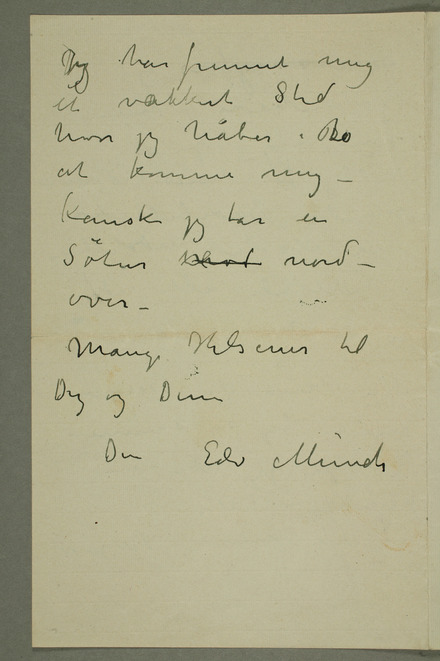 Jeg har funnet mig
et vakkert Sted
hvor jeg håber i Ro
at komme mig –
Kanske jeg tar en
Søtur nord–
over –
Mange Hilsener til
Dig og Dine
Din Edv Munch